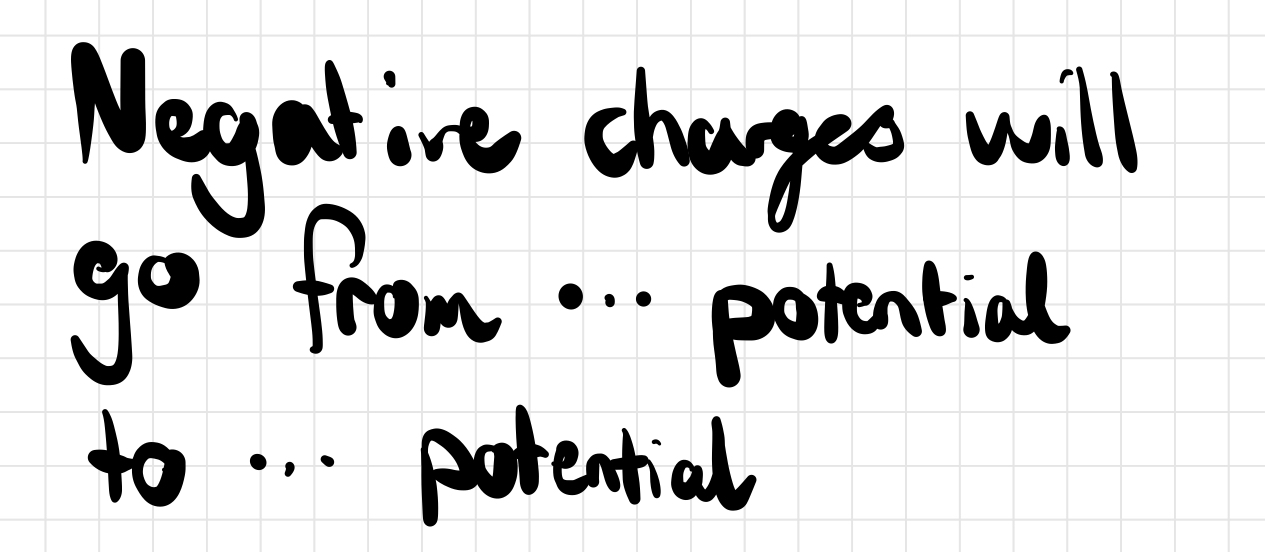 Negative charges will
go from ... potential
to ... potential